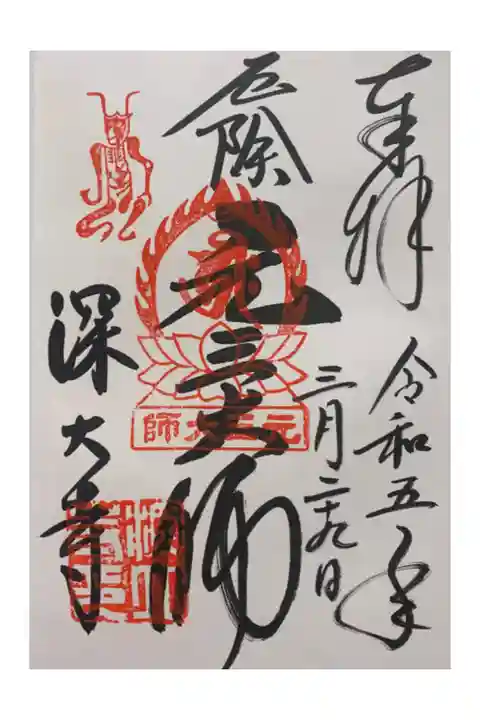 奉拝
令和五年
三月二十九日
厄除
元三大師
元三大師
深大寺